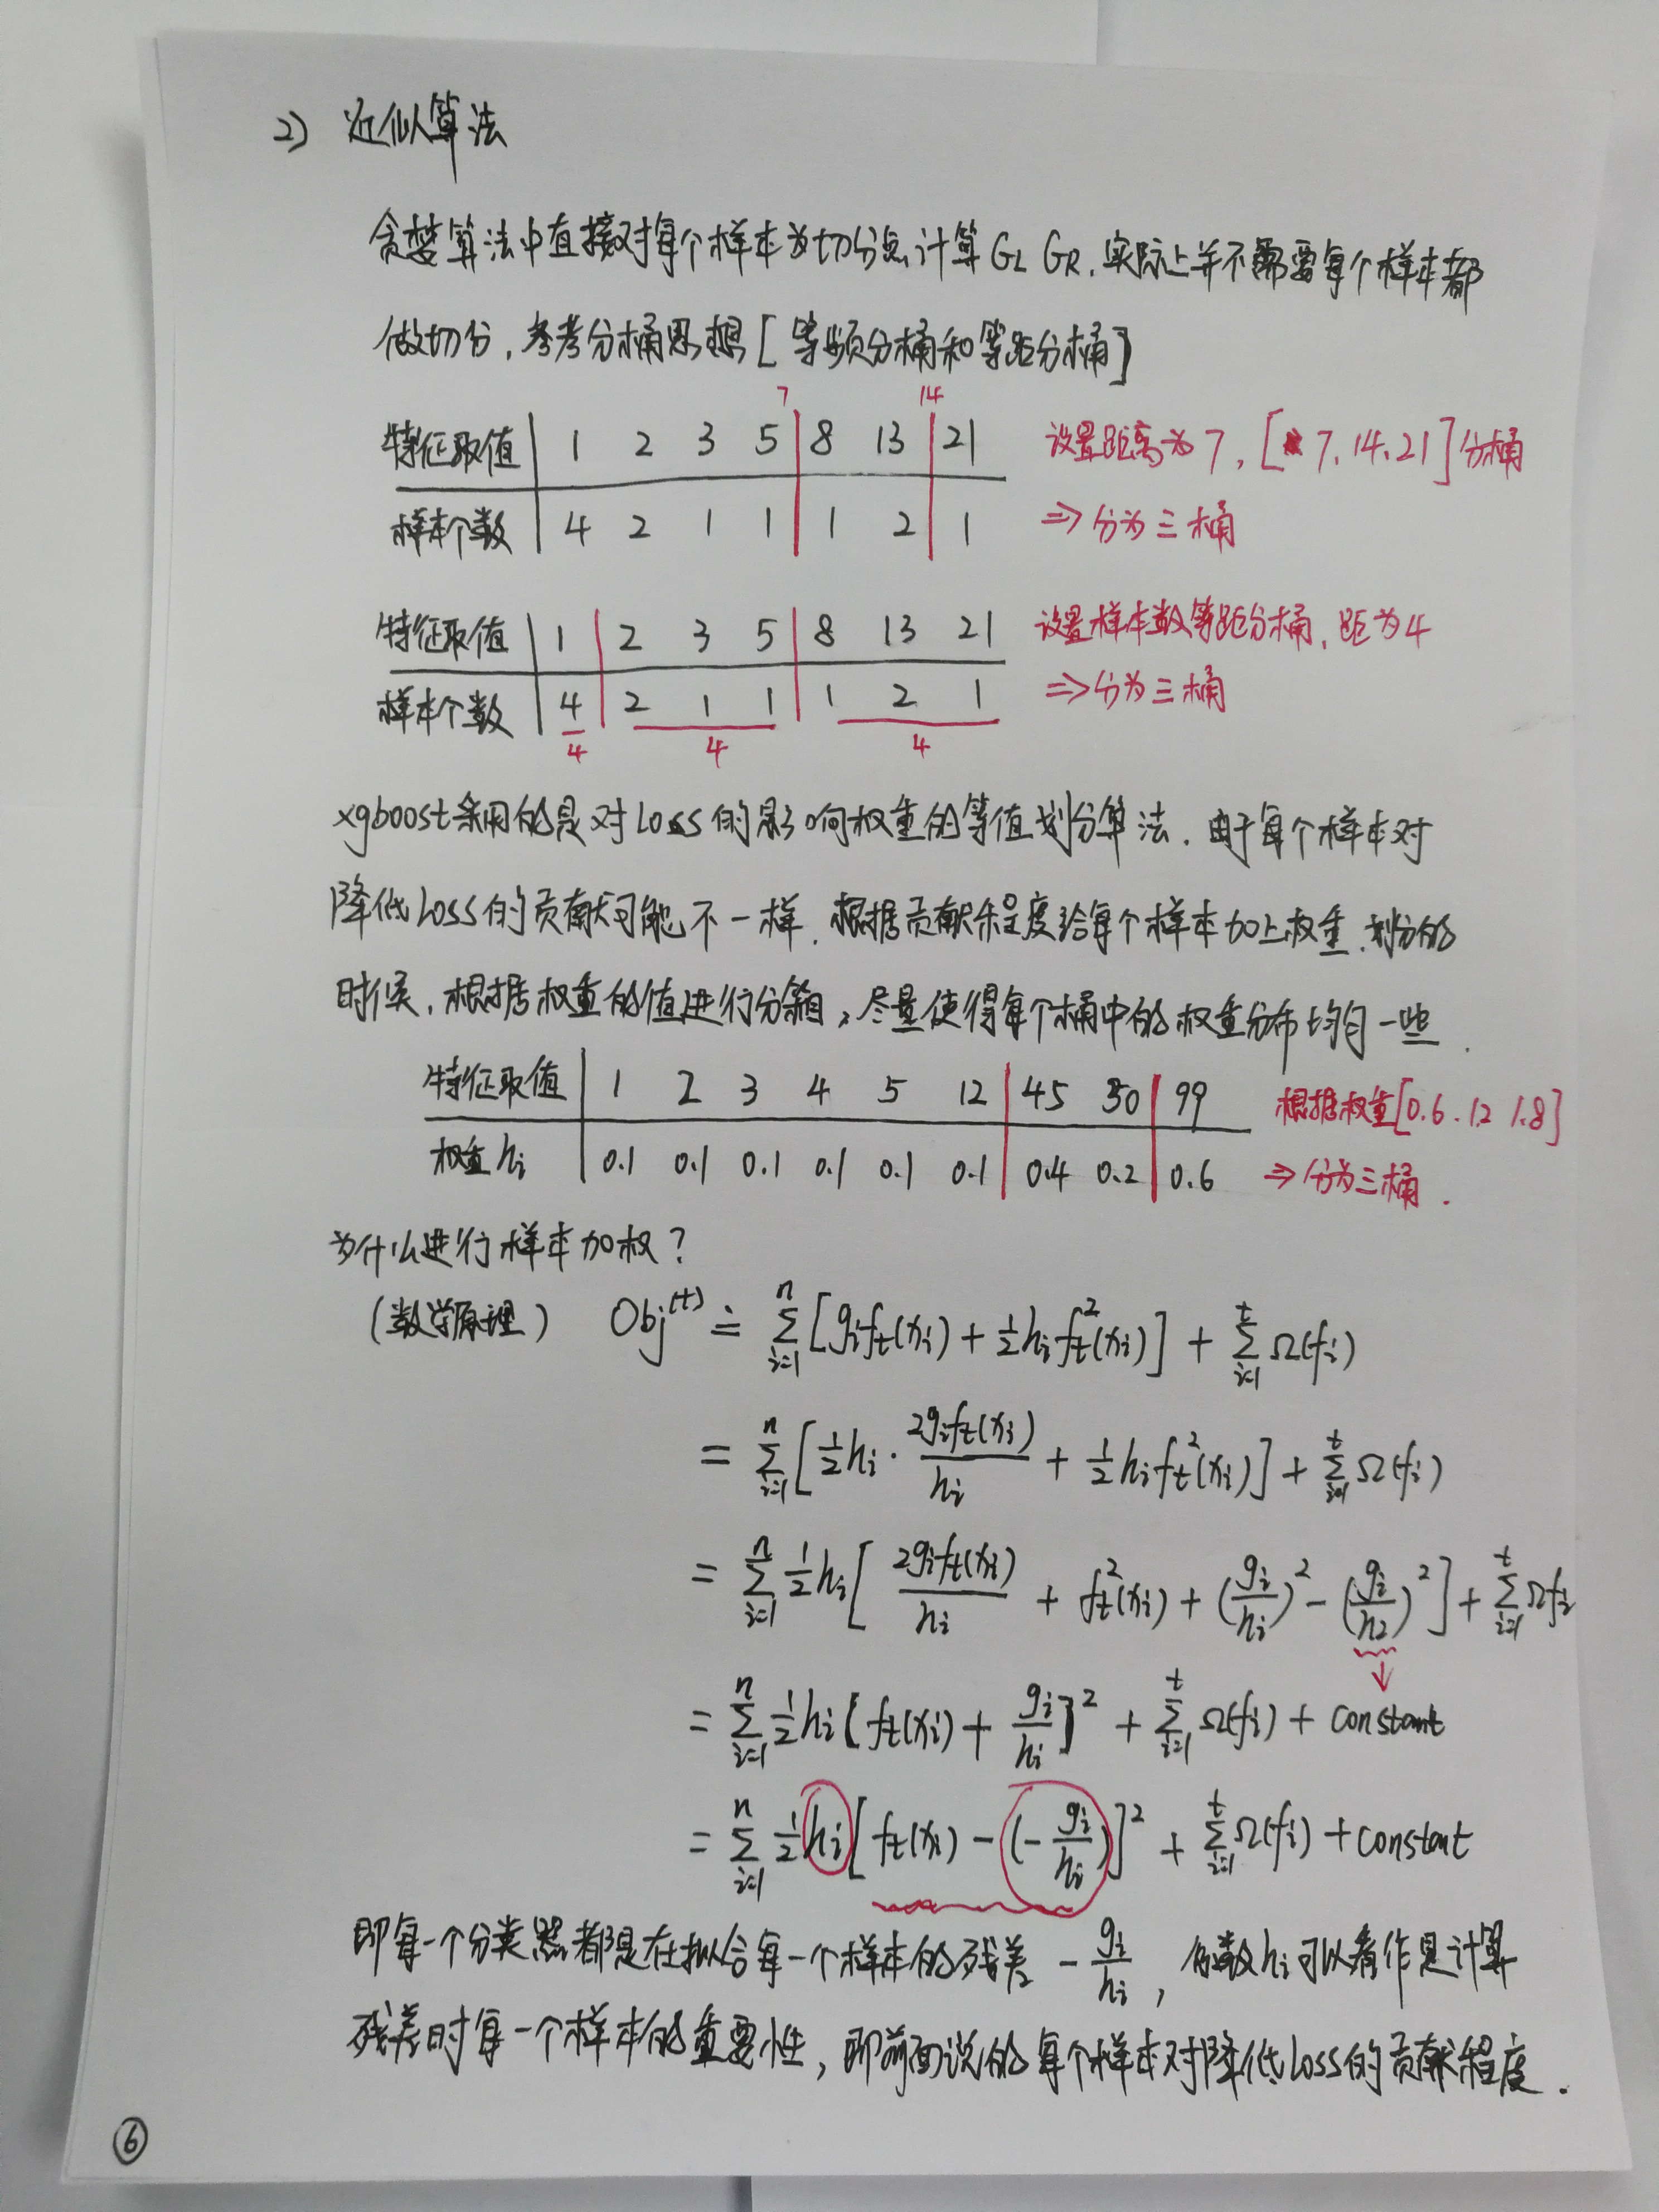 2) 近似算法
贪婪算法中直接对每个样本为切分点计算 GL GR. 实际上并不需要每个样本都
做切分, 参考分桶思想 [等频分桶和等距分桶]
7 14
特征取值 1 2 3 5 8 13 21 设置距离为7, [7, 14, 21] 分桶
样本个数 4 2 1 1 1 2 1 ⇒ 分为三桶
特征取值 1 2 3 5 8 13 21 设置样本数等距分桶, 距为4
样本个数 4 2 1 1 1 2 1 ⇒ 分为三桶
4 4 4
xgboost采用的是对Loss的影响权重的等值划分算法. 由于每个样本对
降低Loss的贡献可能不一样, 根据贡献程度给每个样本加上权重, 划分的
时候, 根据权重的值进行分箱, 尽量使得每个桶中的权重分布均匀一些.
特征取值 1 2 3 4 5 12 45 50 99 根据权重[0.6 . 1.2 1.8]
权重 hi 0.1 0.1 0.1 0.1 0.1 0.1 0.4 0.2 0.6 ⇒ 分为三桶.
为什么进行样本加权?
(数学原理) Obj^(t) ≐ Σ_{i=1}^{n} [g_i f_t(x_i) + 1/2 h_i f_t^2(x_i)] + Σ_{i=1}^{t} Ω(f_i)
= Σ_{i=1}^{n} [1/2 h_i · 2g_i f_t(x_i)/h_i + 1/2 h_i f_t^2(x_i)] + Σ_{i=1}^{t} Ω(f_i)
= Σ_{i=1}^{n} 1/2 h_i [2g_i f_t(x_i)/h_i + f_t^2(x_i) + (g_i/h_i)^2 - (g_i/h_i)^2] + Σ_{i=1}^{t} Ω f_i
↓
= Σ_{i=1}^{n} 1/2 h_i [f_t(x_i) + g_i/h_i]^2 + Σ_{i=1}^{t} Ω(f_i) + constant
= Σ_{i=1}^{n} 1/2 h_i [f_t(x_i) - (- g_i/h_i)]^2 + Σ_{i=1}^{t} Ω(f_i) + constant
即每一个分类器都是在拟合每一个样本的残差 - g_i/h_i, 系数 h_i 可以看作是计算
残差时每一个样本的重要性, 即前面说的每个样本对降低Loss的贡献程度.
⑥